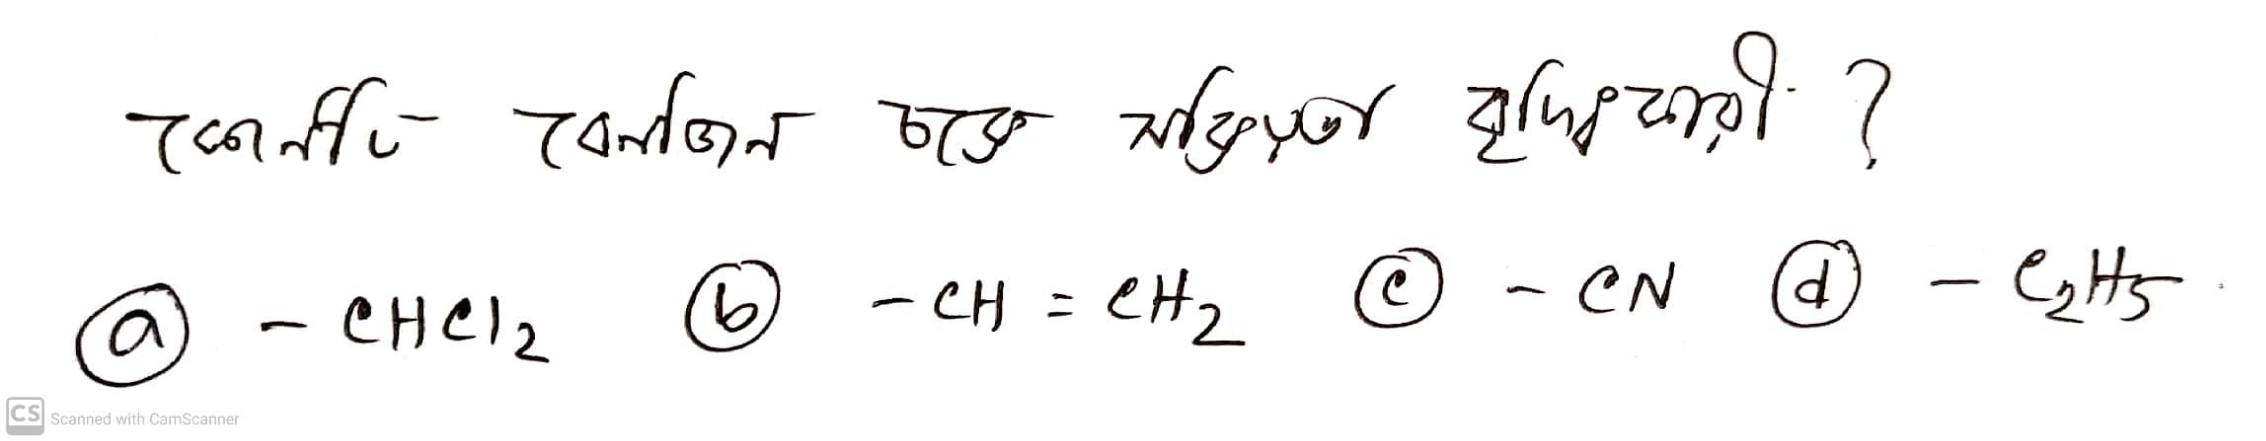 কোনটি বেনজিন চক্রে সক্রিয়তা বৃদ্ধিকারী ?
ⓐ - CHCl₂ ⓑ - CH = CH₂ ⓒ - CN ⓓ - C₂H₅
CS Scanned with CamScanner